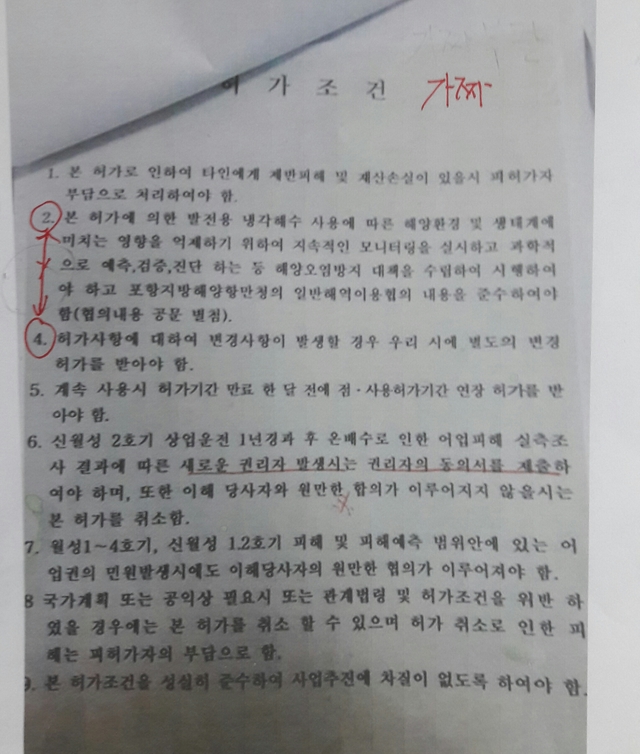 허 가 조 건 가짜
1. 본 허가로 인하여 타인에게 제반피해 및 재산손실이 있을시 피허가자
부담으로 처리하여야 함.
2. 본 허가에 의한 발전용 냉각해수 사용에 따른 해양환경 및 생태계에
미치는 영향을 억제하기 위하여 지속적인 모니터링을 실시하고 과학적
으로 예측,검증,진단 하는 등 해양오염방지 대책을 수립하여 시행하여
야 하고 포항지방해양항만청의 일반해역이용협의 내용을 준수하여야
함(협의내용 공문 별첨).
4. 허가사항에 대하여 변경사항이 발생할 경우 우리 시에 별도의 변경
허가를 받아야 함.
5. 계속 사용시 허가기간 만료 한 달 전에 점·사용허가기간 연장 허가를 받
아야 함.
6. 신월성 2호기 상업운전 1년경과 후 온배수로 인한 어업피해 실측조
사 결과에 따른 새로운 권리자 발생시는 권리자의 동의서를 제출하
여야 하며, 또한 이해 당사자와 원만한 합의가 이루어지지 않을시는
본 허가를 취소함.
7. 월성1~4호기, 신월성 1.2호기 피해 및 피해예측 범위안에 있는 어
업권의 민원발생시에도 이해당사자의 원만한 협의가 이루어져야 함.
8 국가계획 또는 공익상 필요시 또는 관계법령 및 허가조건을 위반 하
였을 경우에는 본 허가를 취소 할 수 있으며 허가 취소로 인한 피
해는 피허가자의 부담으로 함.
9. 본 허가조건을 성실히 준수하여 사업추진에 차질이 없도록 하여야 함.